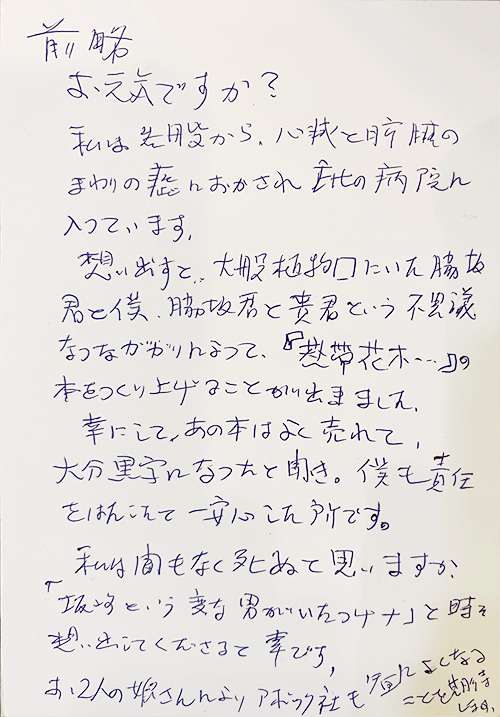 前略
お元気ですか？
私は先般から、心臓と肝臓の
まわりの癌におかされ の病院に
入っています。
想い出すと、大船植物園にいた脇坂
君と僕、脇坂君と貴君という不思議
なつながりによって、『熱帯花木…』の
本をつくり上げることが出来ました。
幸にして、あの本はよく売れて、
大分黒字になったと聞き。僕も責任
をはたして一安心した所です。
私は間もなく死ぬと思いますが、
「坂 という変な男がいたっけナ」と時々
想い出してくださると幸です。
お2人の娘さんにより アボック社も に よくなる
ことを期待
します。